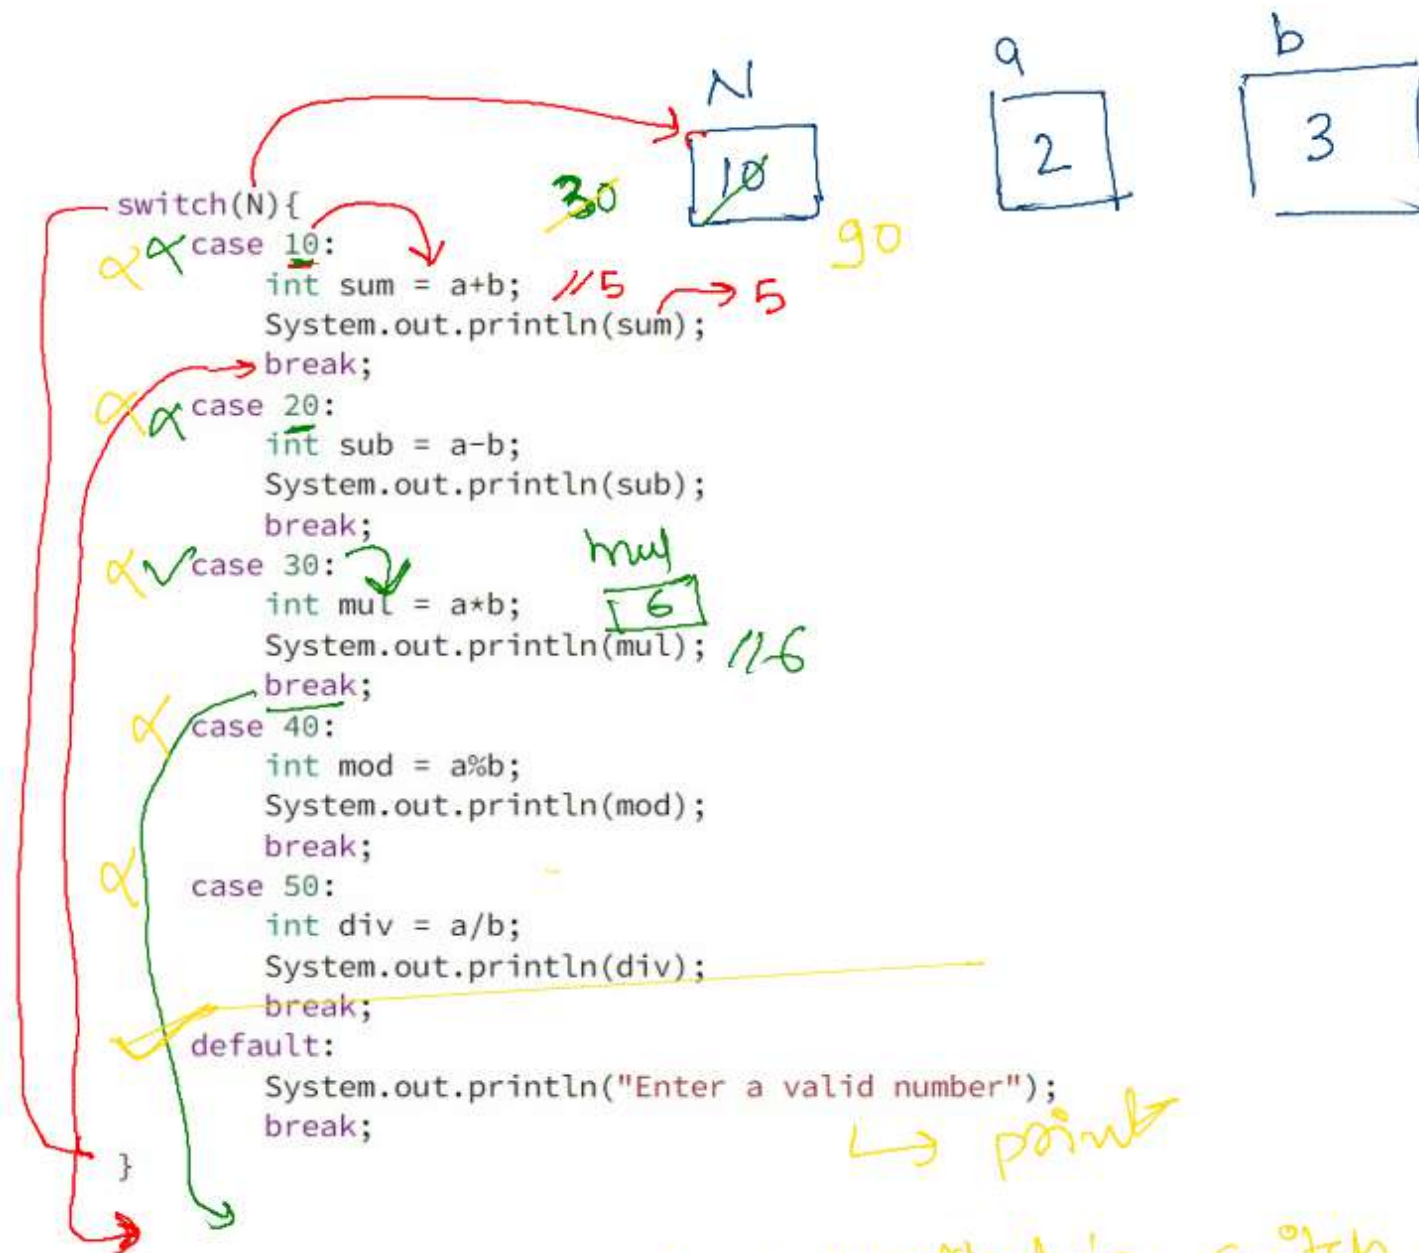 N a b
10 2 3
switch(N){ 30
case 10: 90
int sum = a+b; //5 → 5
System.out.println(sum);
break;
case 20:
int sub = a-b;
System.out.println(sub);
break;
case 30: mul
int mul = a*b; 6
System.out.println(mul); //6
break;
case 40:
int mod = a%b;
System.out.println(mod);
break;
case 50:
int div = a/b;
System.out.println(div);
break;
default:
System.out.println("Enter a valid number");
break; print
}